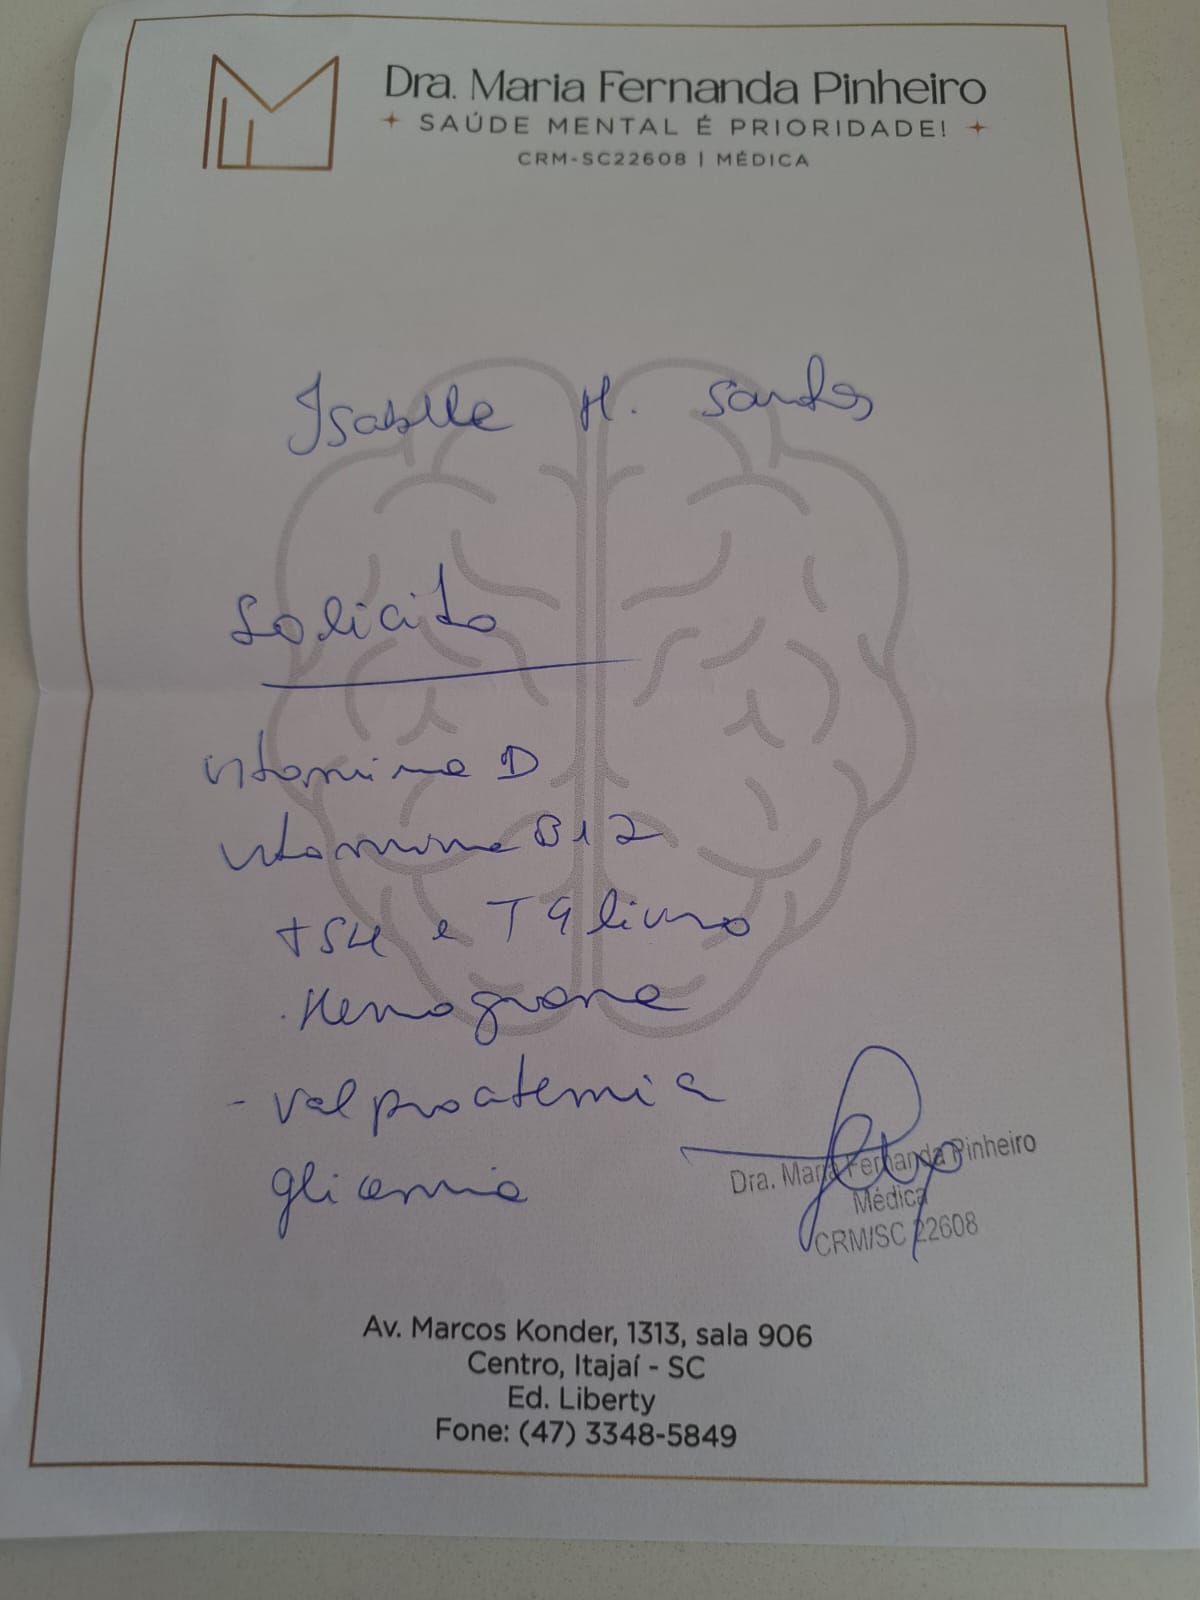 Dra. Maria Fernanda Pinheiro
SAÚDE MENTAL É PRIORIDADE!
CRM-SC22608 | MÉDICA
Isabelle H. Santos
Solicito
vitamina D
vitamina B12
TSH e T4 livre
Hemograma
- Valproatemia
glicemia
Dra. Maria Fernanda Pinheiro
Médica
CRM/SC 22608
Av. Marcos Konder, 1313, sala 906
Centro, Itajaí - SC
Ed. Liberty
Fone: (47) 3348-5849